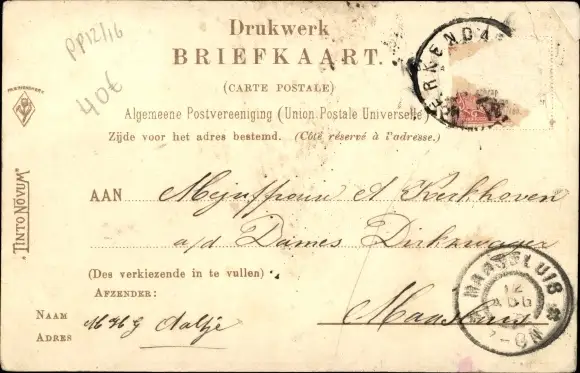 Drukwerk
BRIEFKAART.
(CARTE POSTALE)
Algemeene Postvereeniging (Union Postale Universelle)
Zijde voor het adres bestemd. (Côté réservé à l'adresse.)
PP12/16
40€
TINTO NOVUM
AAN Mejuffrouw A Kerkhoven
a/d Dames Dirkzwager
(Des verkiezende in te vullen)
AFZENDER:
Maassluis
NAAM
ADRES
Aaltje
MAASSLUIS
12
AUG